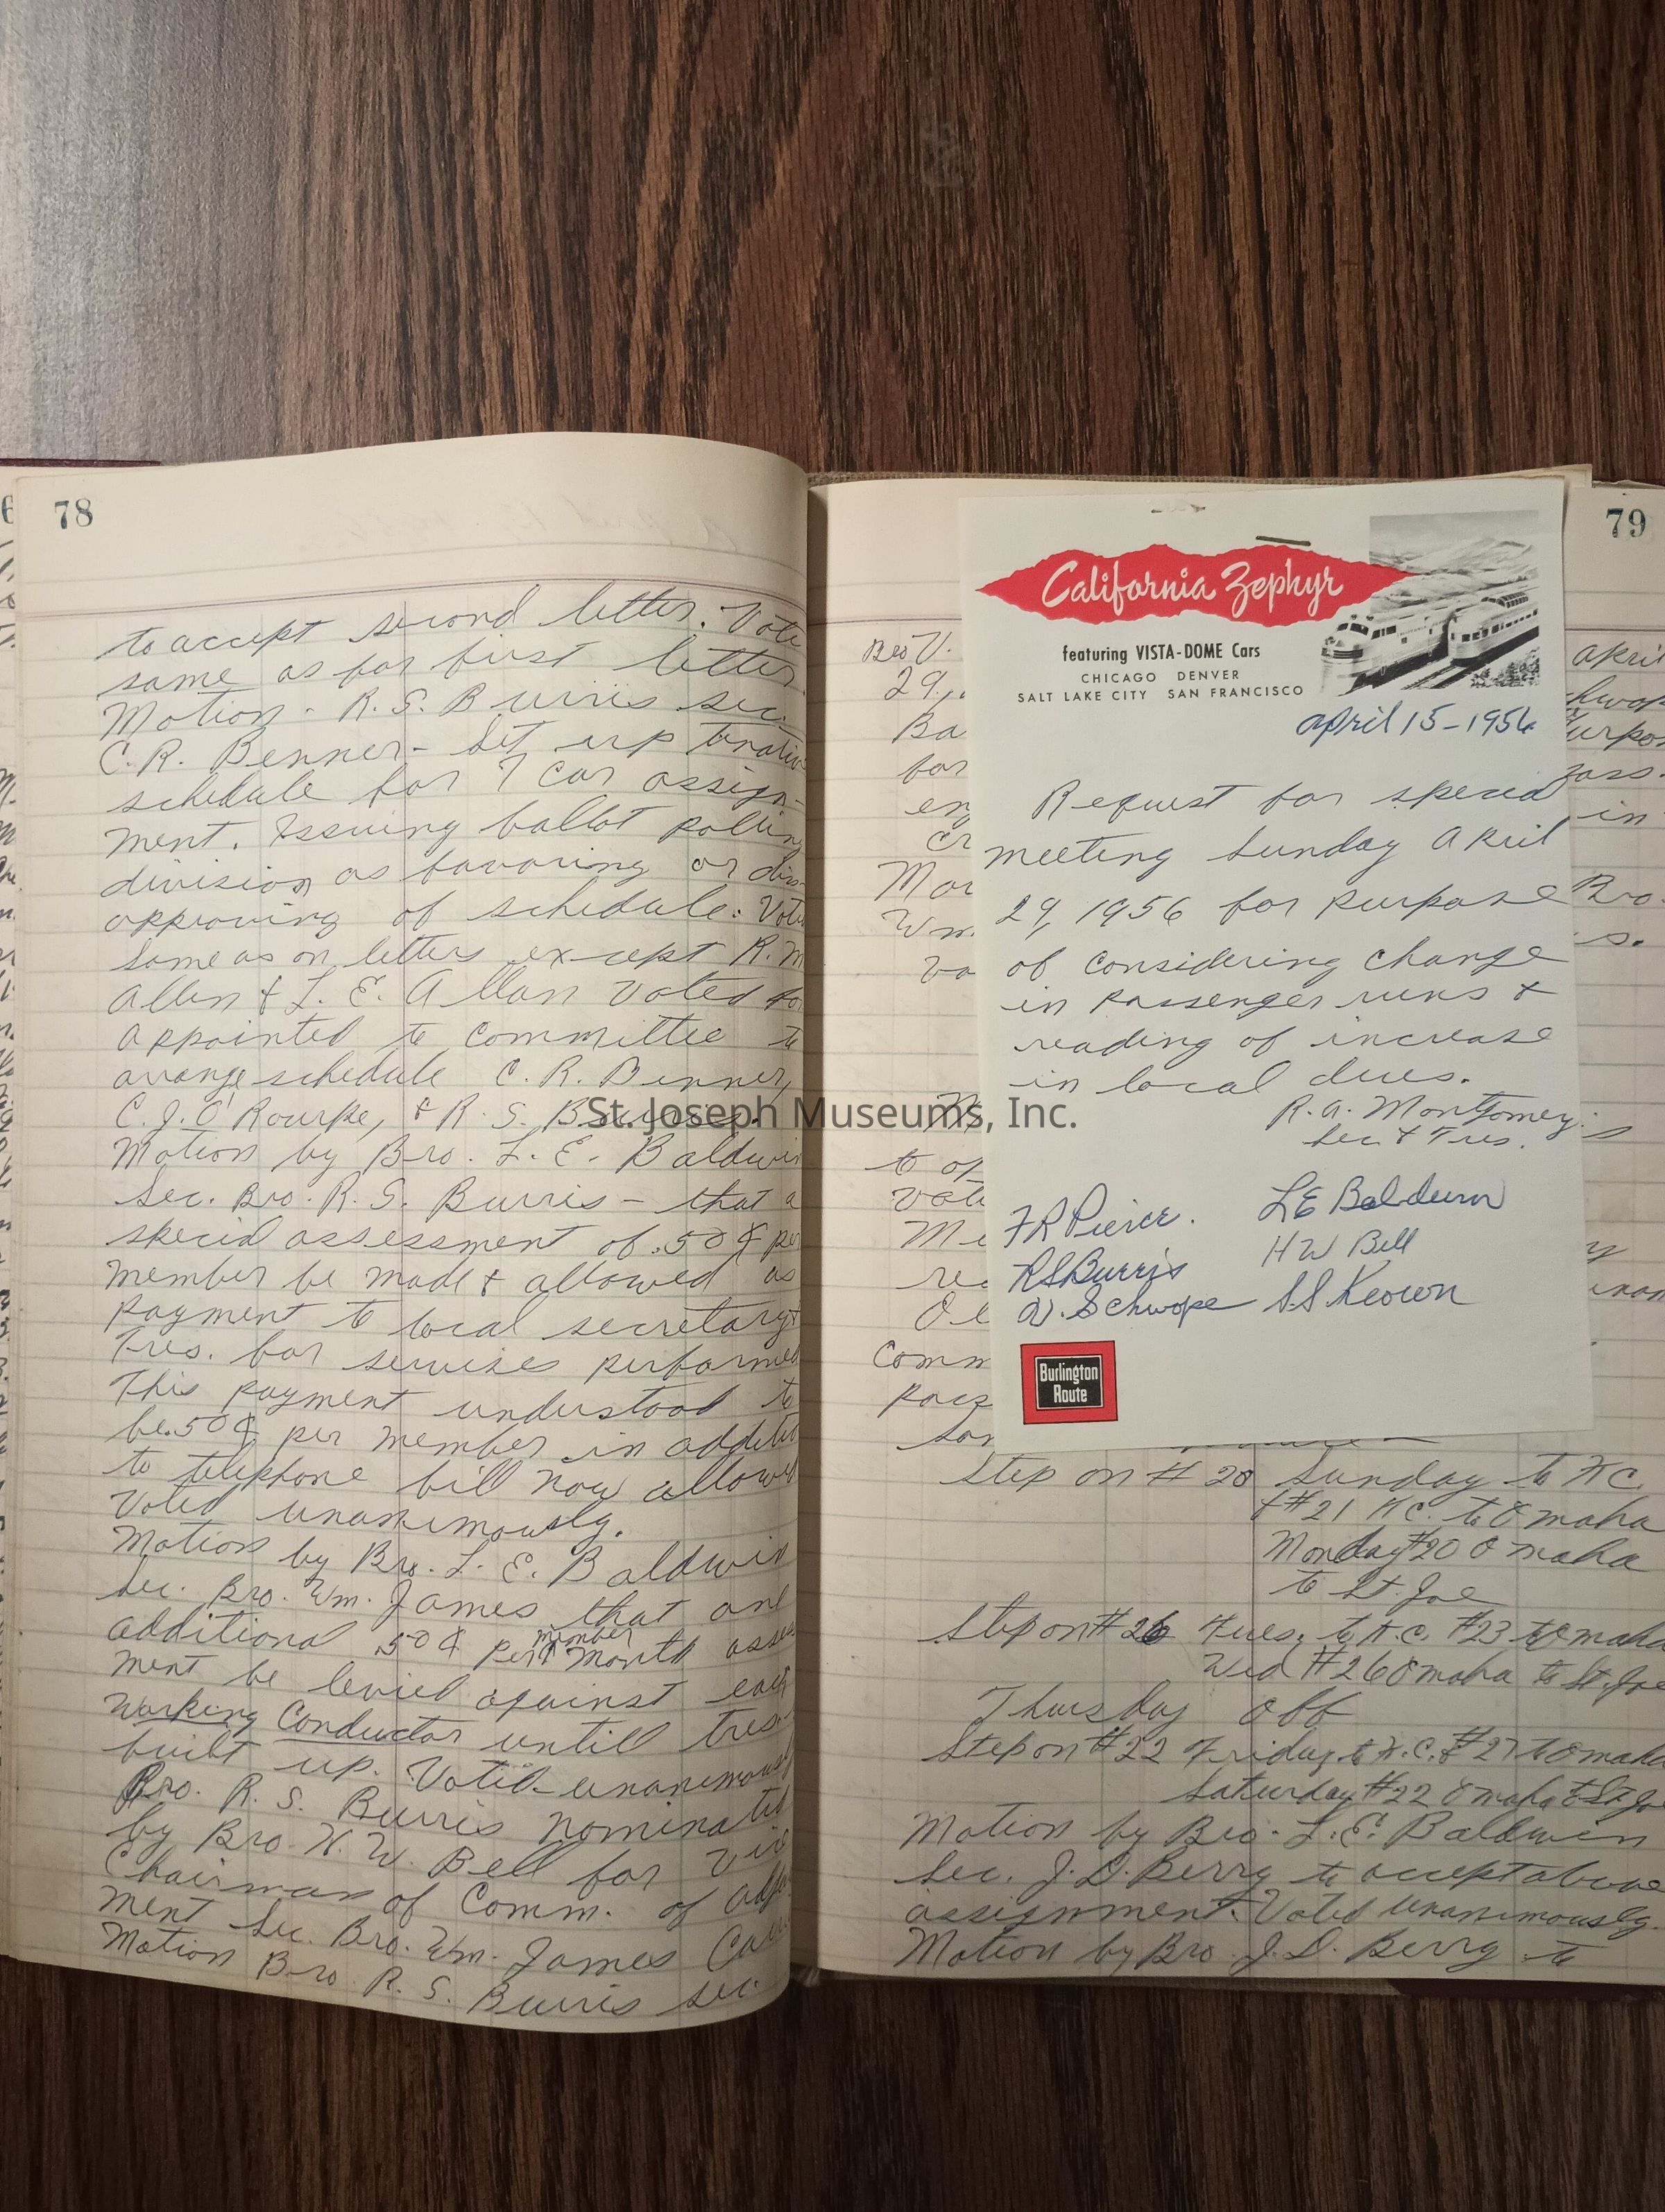 78
to accept second letter. Vote
same as for first letter
Motion - R. S. Burris sec.
C. R. Benner - Set up
schedule for 7 Car assign-
ment. Issuing ballot
division as favoring or dis-
approving of schedule. Vote
same as on letters except R. M
Allen & L. E. Allan Voted
appointed to committee to
arange schedule C. R. Benner,
C. J. O'Rourke, & R. S. Burris.
Motion by Bro. L. E. Baldwin
Sec. Bro. R. S. Burris - that a
special assessment of .50¢ per
member be made & allowed as
payment to local secretary &
Tres. for servises performed
This payment understood to
be .50¢ per member in addit
to telephone bill now allowed
Voted unanimously.
Motion by Bro. L. E. Baldwin
Sec. Bro. Wm. James that an
additional 50¢ per member month asses
ment be levied against each
working Conductor untill tres.
built up. Voted unanimously
Bro. R. S. Burris nominated
by Bro. H. W. Bell for vice
Chairman of Comm. of adjust
ment Sec. Bro. Wm. James
Motion Bro R. S. Burris sec.
79
California Zephyr
featuring VISTA-DOME Cars
CHICAGO DENVER
SALT LAKE CITY SAN FRANCISCO
april 15-1956
Request for special
meeting Sunday April
29, 1956 for purpose
of considering change
in passenger runs &
reading of increase
in local dues.
R. A. Montgomery
Sec & Tres.
FR Pierce. LE Baldwin
RS Burris HW Bell
V. Schwope S.S. Keown
Burlington
Route
Bro V.
29,
Ba
for
en
Cr
Mo
Wm.
Vo
to op
vote
Me
re
Comm
pass
Step on #20 Sunday to K C
& #21 K C. to Omaha
Monday #20 Omaha
to St. Joe
Step on #26 Tues. to K.C. #23 to Omaha
Wed #26 Omaha to St. Joe
Thursday Off
Step on #22 Friday to K.C. & #27 to Omaha
Saturday #22 Omaha to St. Joe
Motion by Bro. L. E. Baldwin
Sec. J. D. Berry to accept above
assignment. Voted unanimously.
Motion by Bro J. D. Berry to
St. Joseph Museums, Inc.